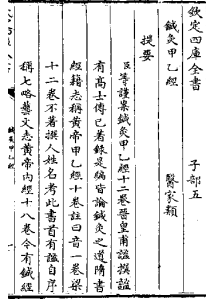 欽定四庫全書　子部五
鍼灸甲乙經　醫家類
提要
臣等謹案鍼灸甲乙經十二卷晉皇甫謐撰謐
有高士傳已著錄是編皆論鍼灸之道隋書
經籍志稱黃帝甲乙經十卷註曰音一卷梁
十二卷不著撰人姓名考此書首有謐自序
稱七略藝文志黃帝內經十八卷今有鍼經